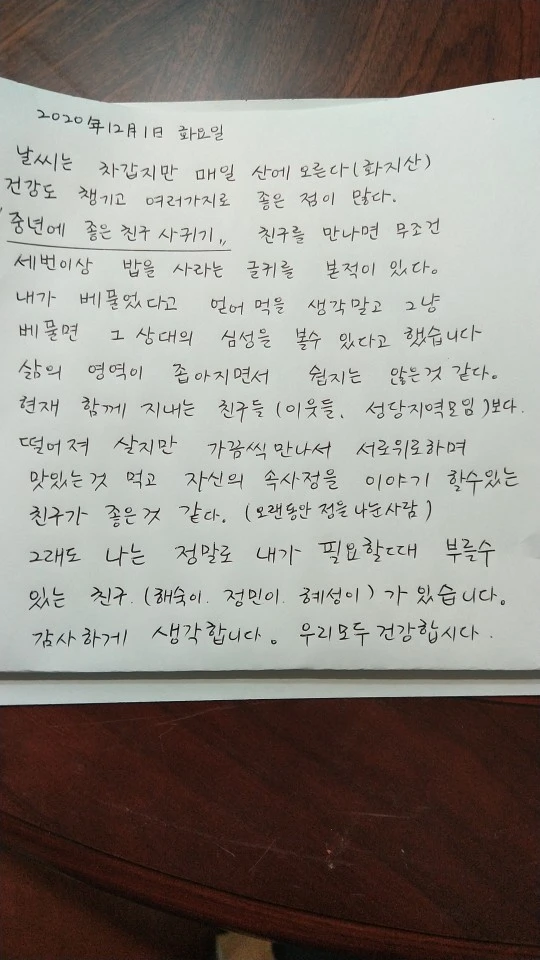 2020年12月1日 화요일
날씨는 차갑지만 매일 산에 오른다(화지산)
건강도 챙기고 여러가지로 좋은 점이 많다.
"중년에 좋은 친구 사귀기" 친구를 만나면 무조건
세번이상 밥을 사라는 글귀를 본적이 있다.
내가 베풀었다고 얻어 먹을 생각말고 그냥
베풀면 그 상대의 심성을 볼수 있다고 했습니다
삶의 영역이 좁아지면서 쉽지는 않은것 같다.
현재 함께 지내는 친구들 (이웃들. 성당지역모임)보다.
떨어져 살지만 가끔씩 만나서 서로위로하며
맛있는것 먹고 자신의 속사정을 이야기 할수있는
친구가 좋은것 같다. (오랜동안 정을 나눈사람)
그래도 나는 정말로 내가 필요할때 부를수
있는 친구. (해숙이. 정민이. 혜성이)가 있습니다.
감사하게 생각합니다. 우리모두 건강합시다.